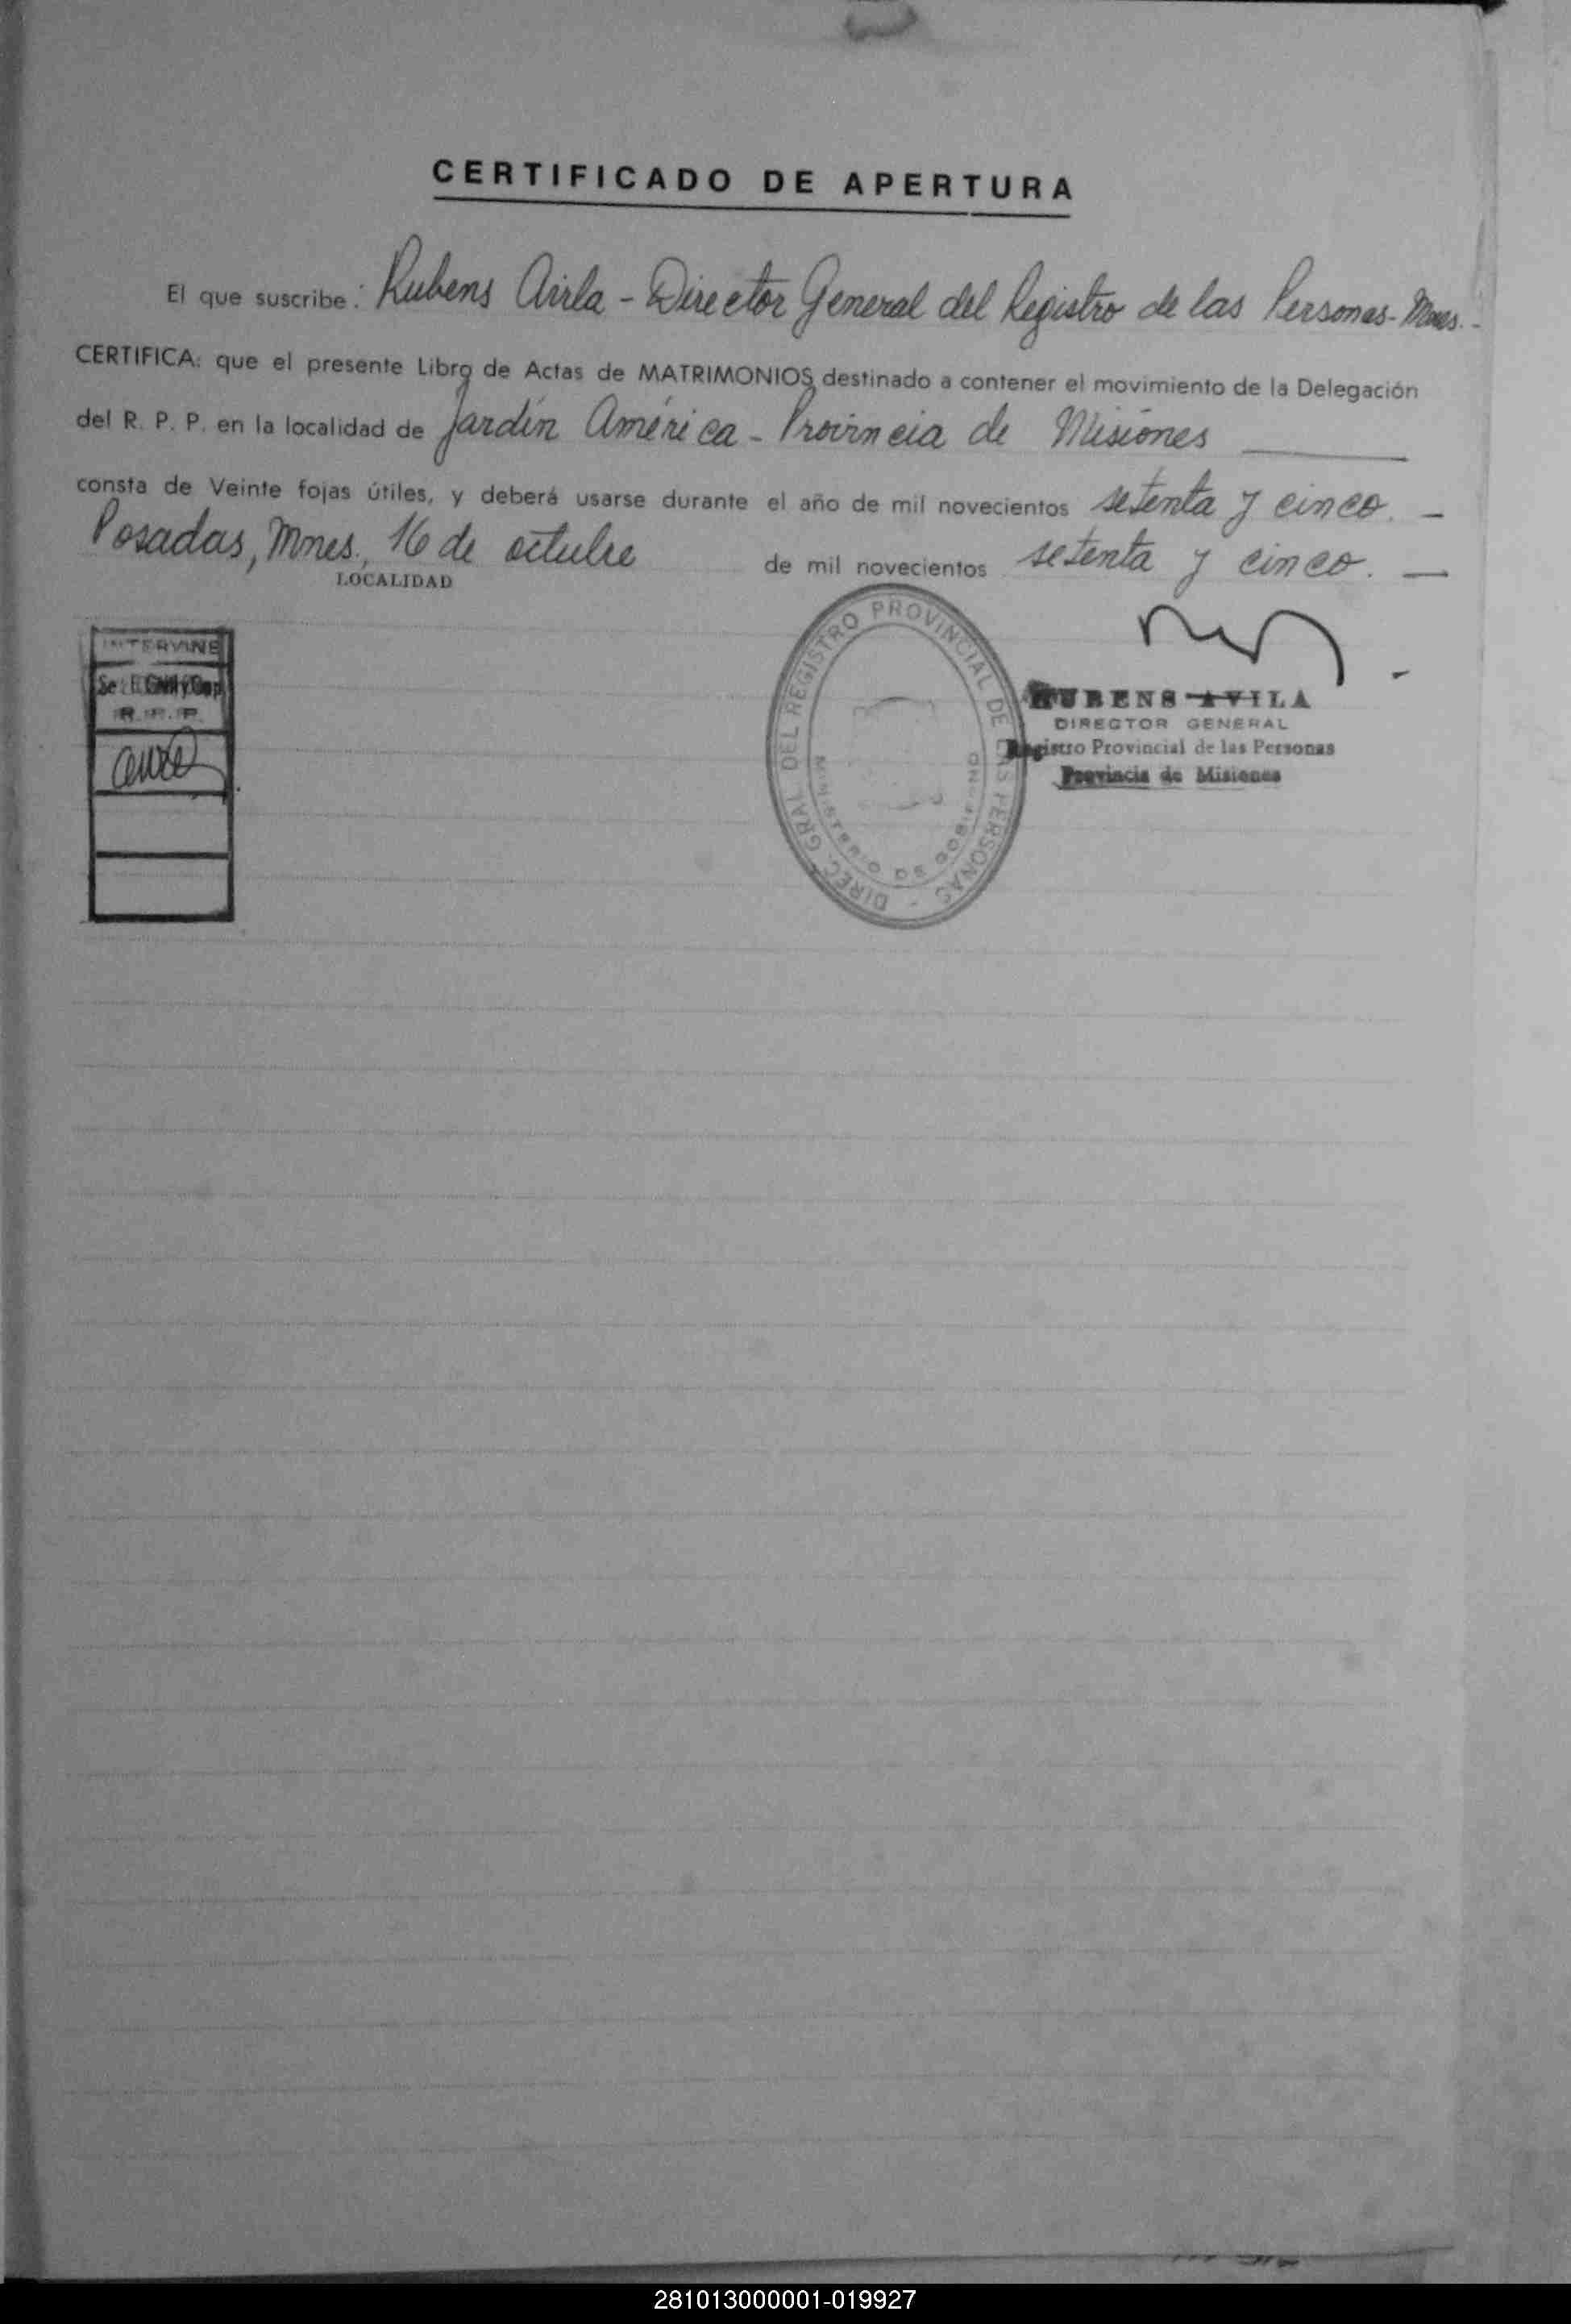 CERTIFICADO DE APERTURA
El que suscribe: Rubens Avila - Director General del Registro de las Personas - Mnes. -
CERTIFICA: que el presente Libro de Actas de MATRIMONIOS destinado a contener el movimiento de la Delegación
del R. P. P. en la localidad de Jardín América - Provincia de Misiones
consta de Veinte fojas útiles, y deberá usarse durante el año de mil novecientos setenta y cinco. -
Posadas, Mnes., 16 de octubre de mil novecientos setenta y cinco. -
LOCALIDAD
INTERVINE
R. P. P.
DIREC. GRAL. DEL REGISTRO PROVINCIAL DE LAS PERSONAS -
MINISTERIO DE GOBIERNO
RUBENS AVILA
DIRECTOR GENERAL
Registro Provincial de las Personas
Provincia de Misiones
281013000001-019927